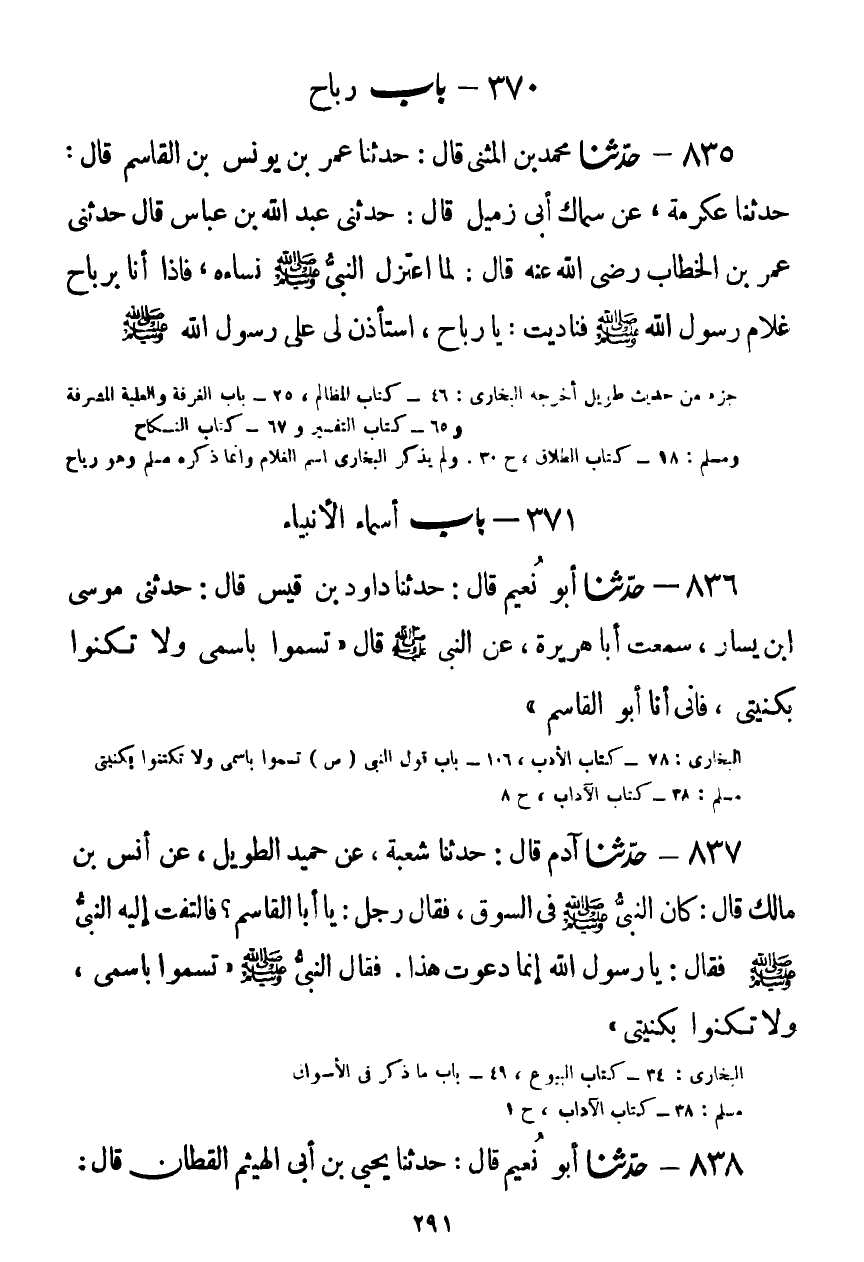 ٣٧٠ – باب رباح
٨٣٥ – حدّثنا محمد بن المثنى قال : حدثنا عمر بن يونس بن القاسم قال :
حدثنا عكرمة ، عن سماك أبى زميل قال : حدثنى عبد الله بن عباس قال حدثنى
عمر بن الخطاب رضى الله عنه قال : لما اعتزل النبىُّ ﷺ نساءه ، فاذا أنا برباح
غلام رسول الله ﷺ فناديت : يا رباح ، استأذن لى على رسول الله ﷺ
جزء من حديث طويل أخرجه البخارى : ٤٦ ــ كتاب المظالم ، ٢٥ ــ باب الغرفة والعلية المشرفة
و ٦٥ ــ كتاب التفسير و ٦٧ ــ كتاب النكاح
ومسلم : ١٨ ــ كتاب الطلاق ، ح ٣٠ . ولم يذكر البخارى اسم الغلام وانما ذكره مسلم وهو رباح
٣٧١ – باب أسماء الأنبياء
٨٣٦ – حدّثنا أبو نُعيم قال : حدثنا داود بن قيس قال : حدثنى موسى
ابن يسار ، سمعت أبا هريرة ، عن النبى ﷺ قال « تسموا باسمى ولا تكنوا
بكنيتى ، فانى أنا أبو القاسم »
البخارى : ٧٨ ــ كتاب الأدب ، ١٠٦ ــ باب قول النبى ( ص ) تسموا باسمى ولا تكتنوا بكنيتى
مسلم : ٣٨ ــ كتاب الآداب ، ح ٨
٨٣٧ – حدّثنا آدم قال : حدثنا شعبة ، عن حميد الطويل ، عن أنس بن
مالك قال : كان النبىُّ ﷺ فى السوق ، فقال رجل : يا أبا القاسم ؟ فالتفت إليه النبىُّ
ﷺ فقال : يا رسول الله إنما دعوت هذا . فقال النبىُّ ﷺ « تسموا باسمى ،
ولا تكنوا بكنيتى »
البخارى : ٣٤ ــ كتاب البيوع ، ٤٩ ــ باب ما ذكر فى الأسواق
مسلم : ٣٨ ــ كتاب الآداب ، ح ١
٨٣٨ – حدّثنا أبو نُعيم قال : حدثنا يحيى بن أبى الهيثم القطان قال :
٢٩١